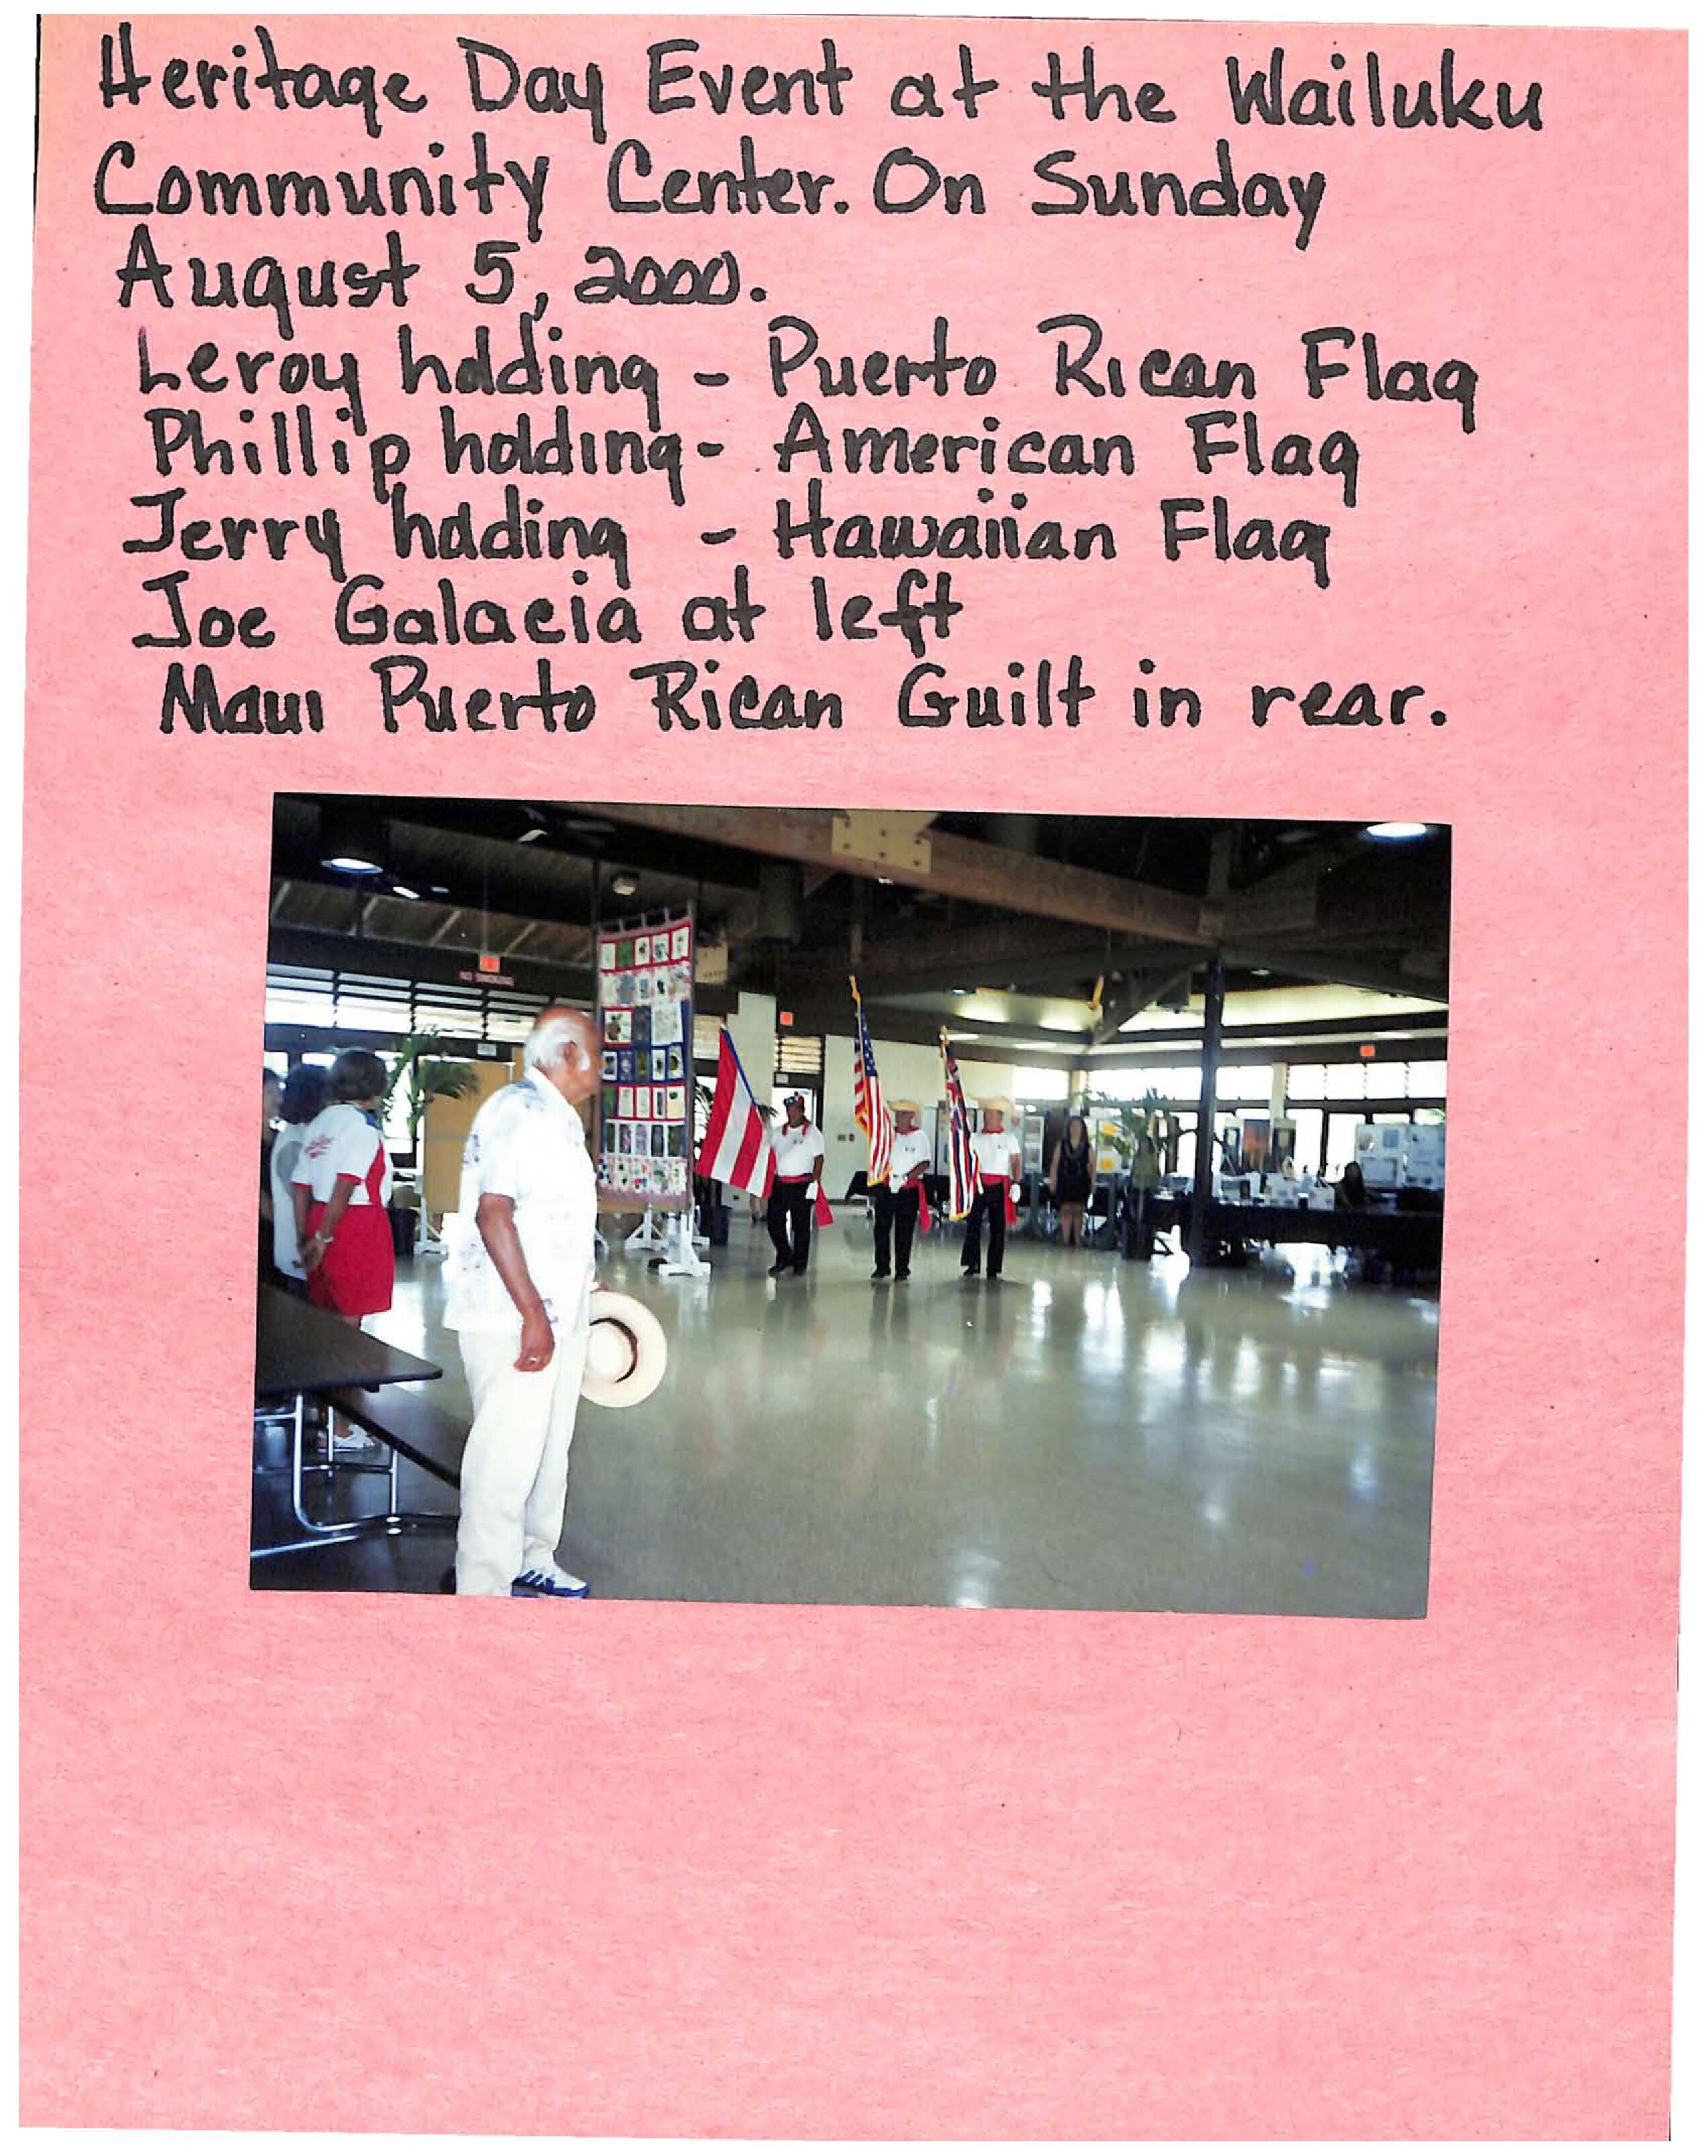 Heritage Day Event at the Wailuku
Community Center. On Sunday
August 5, 2000.
Leroy holding - Puerto Rican Flag
Phillip holding - American Flag
Jerry holding - Hawaiian Flag
Joe Galacia at left
Maui Puerto Rican Guilt in rear.
NO SMOKING